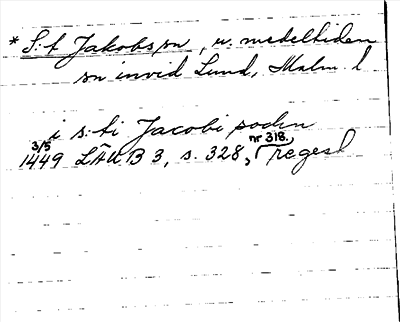 * S:t Jakobs sn, u. medeltiden
sn invid Lund, Malm. l
i s:ti Jacobi sockn
3/5 1449 LÄUB 3, s. 328, nr 318, regest